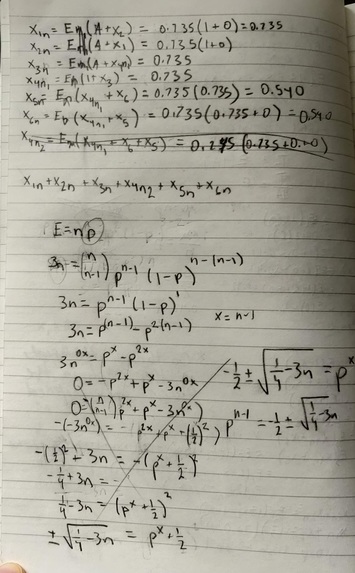 x₁ₙ = Eₘ(A+x₂) = 0.735(1+0)=0.735
x₂ₙ = Eₘ(A+x₁) = 0.735(1+0)
x₃ₙ = Eₘ(A+x₄ₙ₁) = 0.735
x₄ₙ₁ = Eₚ(1+x₃) = 0.735
x₅ₙ = Eₚ(x₄ₙ₁+x₆) = 0.735(0.735) = 0.540
x₆ₙ = Eₚ(x₄ₙ₁+x₅) = 0.735(0.735+0) = 0.540
x₄ₙ₂ = Eₘ(x₄ₙ₁+x₆+x₅) = (0.735+0+0)
x₁ₙ+x₂ₙ+x₃ₙ+x₄ₙ₂+x₅ₙ+x₆ₙ
E=np
3n=(n n-1) p^(n-1) (1-p)^(n-(n-1))
3n = p^(n-1) (1-p)^1
3n = p^(n-1) - p^2(n-1) x = n-1
3n^0x = p^x - p^2x
0 = -p^2x + p^x - 3n^0x
-1/2 ± √(1/4 - 3n) = p^x
0=-(n n-1) p^2x + p^x - 3n^0x)
p^(n-1) = -1/2 ± √(1/4 - 3n)
-(-3n^0x) = - p^2x + p^x + (1/2)^2)
-(1/2)^2 + 3n = -(p^x + 1/2)^2
-1/4 + 3n = -
1/4 - 3n = (p^x + 1/2)^2
± √(1/4 - 3n) = p^x + 1/2